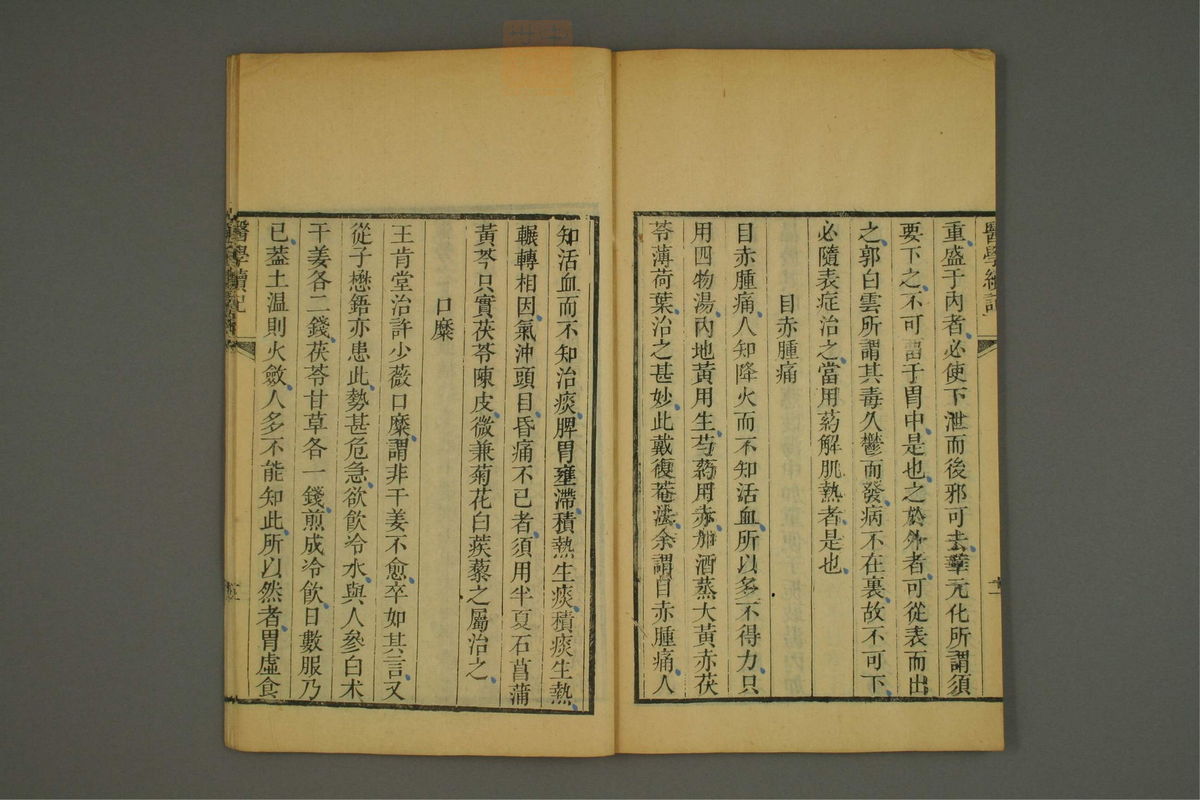 醫學續記
重盛于內者必使下泄而後邪可去華元化所謂須
要下之不可畱于胃中是也之於外者可從表而出
之郭白雲所謂其毒久鬱而發病不在裏故不可下
必隨表症治之當用葯解肌熱者是也
目赤腫痛
目赤腫痛人知降火而不知活血所以多不得力只
用四物湯內地黃用生芍葯用赤加酒蒸大黃赤茯
苓薄荷葉治之甚妙此戴復菴法余謂目赤腫痛人
知活血而不知治痰脾胃壅滯積熱生痰積痰生熱
輾轉相因氣沖頭目昏痛不已者須用半夏石菖蒲
黃芩只實茯苓陳皮微兼菊花白蒺藜之屬治之
口糜
王肯堂治許少薇口糜謂非干姜不愈卒如其言又
從子懋鋙亦患此勢甚危急欲飲冷水與人參白术
干姜各二錢茯苓甘草各一錢煎成冷飲日數服乃
已葢土温則火斂人多不能知此所以然者胃虛食
醫學續記